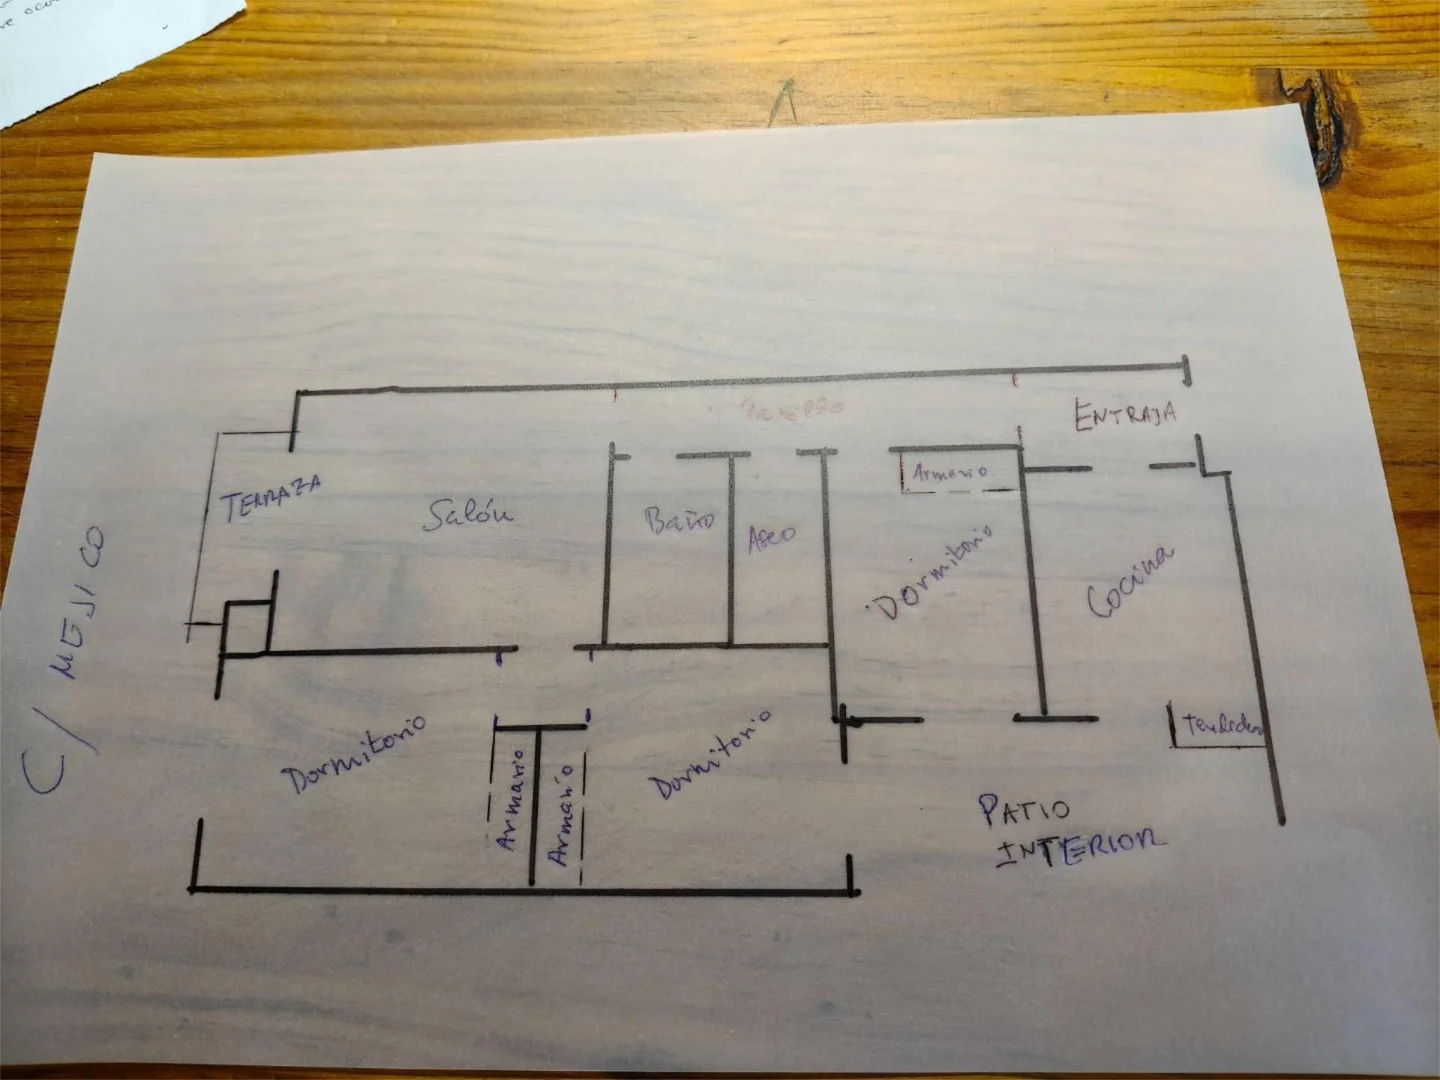 Pasillo
ENTRADA
TERRAZA
Salón
Baño
Aseo
Armario
Dormitorio
Cocina
C/ MEJICO
Dormitorio
Armario
Armario
Dormitorio
Tendedero
PATIO
INTERIOR